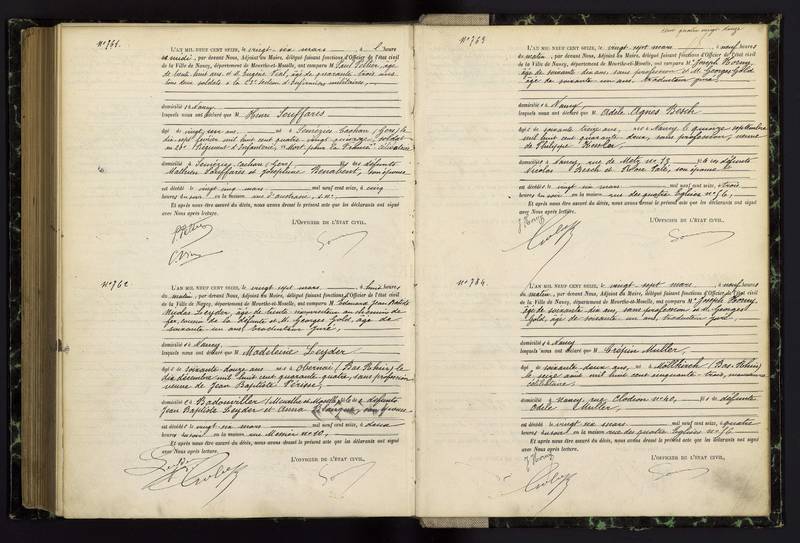 N° 761.
L'AN MIL NEUF CENT SEIZE, le vingt six mars à heure
et midi, par devant Nous, Adjoint au Maire, délégué faisant fonctions d'Officier de l'état civil
de la Ville de Nancy, département de Meurthe-et-Moselle, ont comparu M. Paul Peltier, âgé
de trente huit ans et M. Eugène Vial, âgé de quarante trois ans
tous deux soldats à la 23e section d'Infirmiers militaires,
domicilié s à Nancy
lesquels nous ont déclaré que M. Henri Souffarès
âgé de vingt un ans, né à Semézies Cachan (Gers) le
dix sept février mil huit cent quatre vingt quinze soldat
au Régiment d'Infanterie, "Mort pour la France" célibataire
domicilié à Semézies-Cachan (Gers) fils des défunts
Mathieu Souffarès et Joséphine Benabent, son épouse
est décédé le vingt cinq mars mil neuf cent seize, à cinq
heures du soir en la maison rue d'Auxonne, s.n°
Et après nous être assuré du décès, nous avons dressé le présent acte que les déclarants ont signé
avec Nous après lecture.
L'OFFICIER DE L'ÉTAT CIVIL,
N° 762
L'AN MIL NEUF CENT SEIZE, le vingt sept mars à huit heures
du matin, par devant Nous, Adjoint au Maire, délégué faisant fonctions d'Officier de l'état civil
de la Ville de Nancy, département de Meurthe-et-Moselle, ont comparu M. Edmond Jean Baptiste
Nicolas Leyder, âgé de trente
de la défunte et M. Georges Gold, âgé de
soixante un ans, traducteur juré,
domicilié s à Nancy
lesquels nous ont déclaré que M. Madeleine Leyder
âgé e de soixante douze ans née à Obernai (Bas Rhin) le
dix décembre mil huit cent quarante quatre, sans profession
veuve de Jean Baptiste Périsse,
domicilié e à Badonviller (Meurthe et Moselle) fille de défunts
Jean Baptiste Leyder et Anna son épouse
est décédé e le vingt six mars mil neuf cent seize, à deux
heures du soir en la maison rue Messier n° 10,
Et après nous être assuré du décès, nous avons dressé le présent acte que les déclarants ont signé
avec Nous après lecture.
L'OFFICIER DE L'ÉTAT CIVIL,
cent quatre vingt douze
N° 763
L'AN MIL NEUF CENT SEIZE, le vingt sept mars à neuf heures
du matin, par devant Nous, Adjoint au Maire, délégué faisant fonctions d'Officier de l'état civil
de la Ville de Nancy, département de Meurthe-et-Moselle, ont comparu M. Joseph
âgé de soixante dix ans, sans profession et M. Georges Gold
âgé de soixante un ans, traducteur juré,
domicilié s à Nancy
lesquels nous ont déclaré que M. Adèle Agnès Besch
âgé e de soixante treize ans, née à Nancy le quinze septembre
mil huit cent quarante deux, sans profession, veuve
de Philippe
domicilié e à Nancy, rue de Metz n° 73 fille de défunts
Nicolas Besch et son épouse
est décédé e le vingt six mars mil neuf cent seize, à trois
heures du soir en la maison rue des quatre Eglises n° 76,
Et après nous être assuré du décès, nous avons dressé le présent acte que les déclarants ont signé
avec Nous après lecture.
L'OFFICIER DE L'ÉTAT CIVIL,
N° 764.
L'AN MIL NEUF CENT SEIZE, le vingt sept mars à neuf heures
du matin, par devant Nous, Adjoint au Maire, délégué faisant fonctions d'Officier de l'état civil
de la Ville de Nancy, département de Meurthe-et-Moselle, ont comparu M. Joseph
âgé de soixante dix ans, sans profession et M. Georges
Gold, âgé de soixante un ans, traducteur juré,
domicilié s à Nancy
lesquels nous ont déclaré que M. Crépin Muller,
âgé de soixante deux ans, né à (Bas Rhin)
le seize août mil huit cent cinquante trois,
célibataire,
domicilié à Nancy, rue Clodion n° 40, fils de défunte
Odile Muller,
est décédé le vingt six mars mil neuf cent seize, à quatre
heures du soir en la maison rue des quatre Eglises n° 76
Et après nous être assuré du décès, nous avons dressé le présent acte que les déclarants ont signé
avec Nous après lecture.
L'OFFICIER DE L'ÉTAT CIVIL,